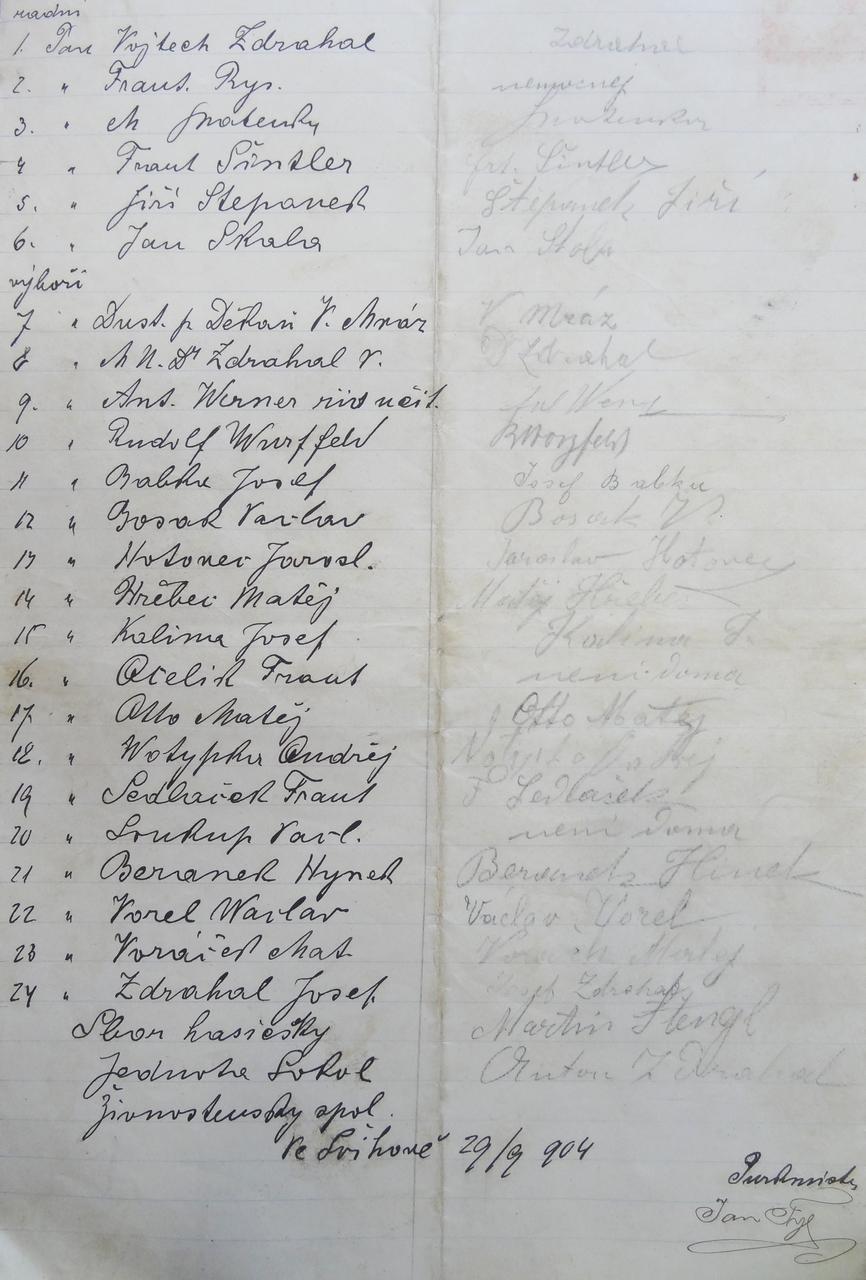 radní
1. Pan Vojtech Zdrahal Zdrahal
2. " Frant. Rys. nemocnej
3. " M
4 " Frant Šintler frt. Šintler
5. " Jiří Štepanek Štěpanek Jiří
6. " Jan Skala Jan
výboři
7 " Dust. p Děkan V. Mráz V Mráz
8 " M U. Dr Zdrahal V. Dr Zdrahal
9. " Ant. Werner učit.
10 " Rudolf Wurffeld
11 " Babka Josef Josef Babka
12 " Bosak Vaclav Bosak V.
13 " Hotovec Jarosl. Jaroslav Hotovec
14 " Hřebec Matěj Matěj Hřebec
15 " Kalima Josef Kalima J.
16. " Ocelik Frant neni doma
17. " Otto Matěj Otto Matěj
18. " Wotypka Ondřej
19 " Sedlaček Frant F Sedlaček
20 " Soukup Vacl. neni doma
21 " Beranek Hynek Beranek Hinek
22 " Vorel Waclav Václav Vorel
23 " Voráček Mat. Matěj
24 " Zdrahal Josef. Josef Zdrahal
Sbor hasičsky Martin Štengl
Jednota Sokol Anton Zdrahal
Živnostensky spol.
Ve Švihově 29/9 904
Purkmistr
Jan Fyl